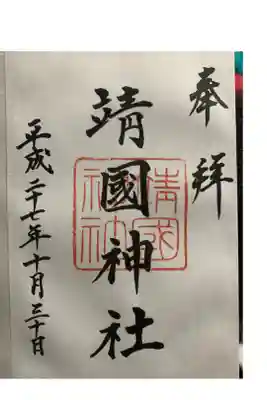 奉拝
靖國神社
靖国神社
平成二十七年十月三十日